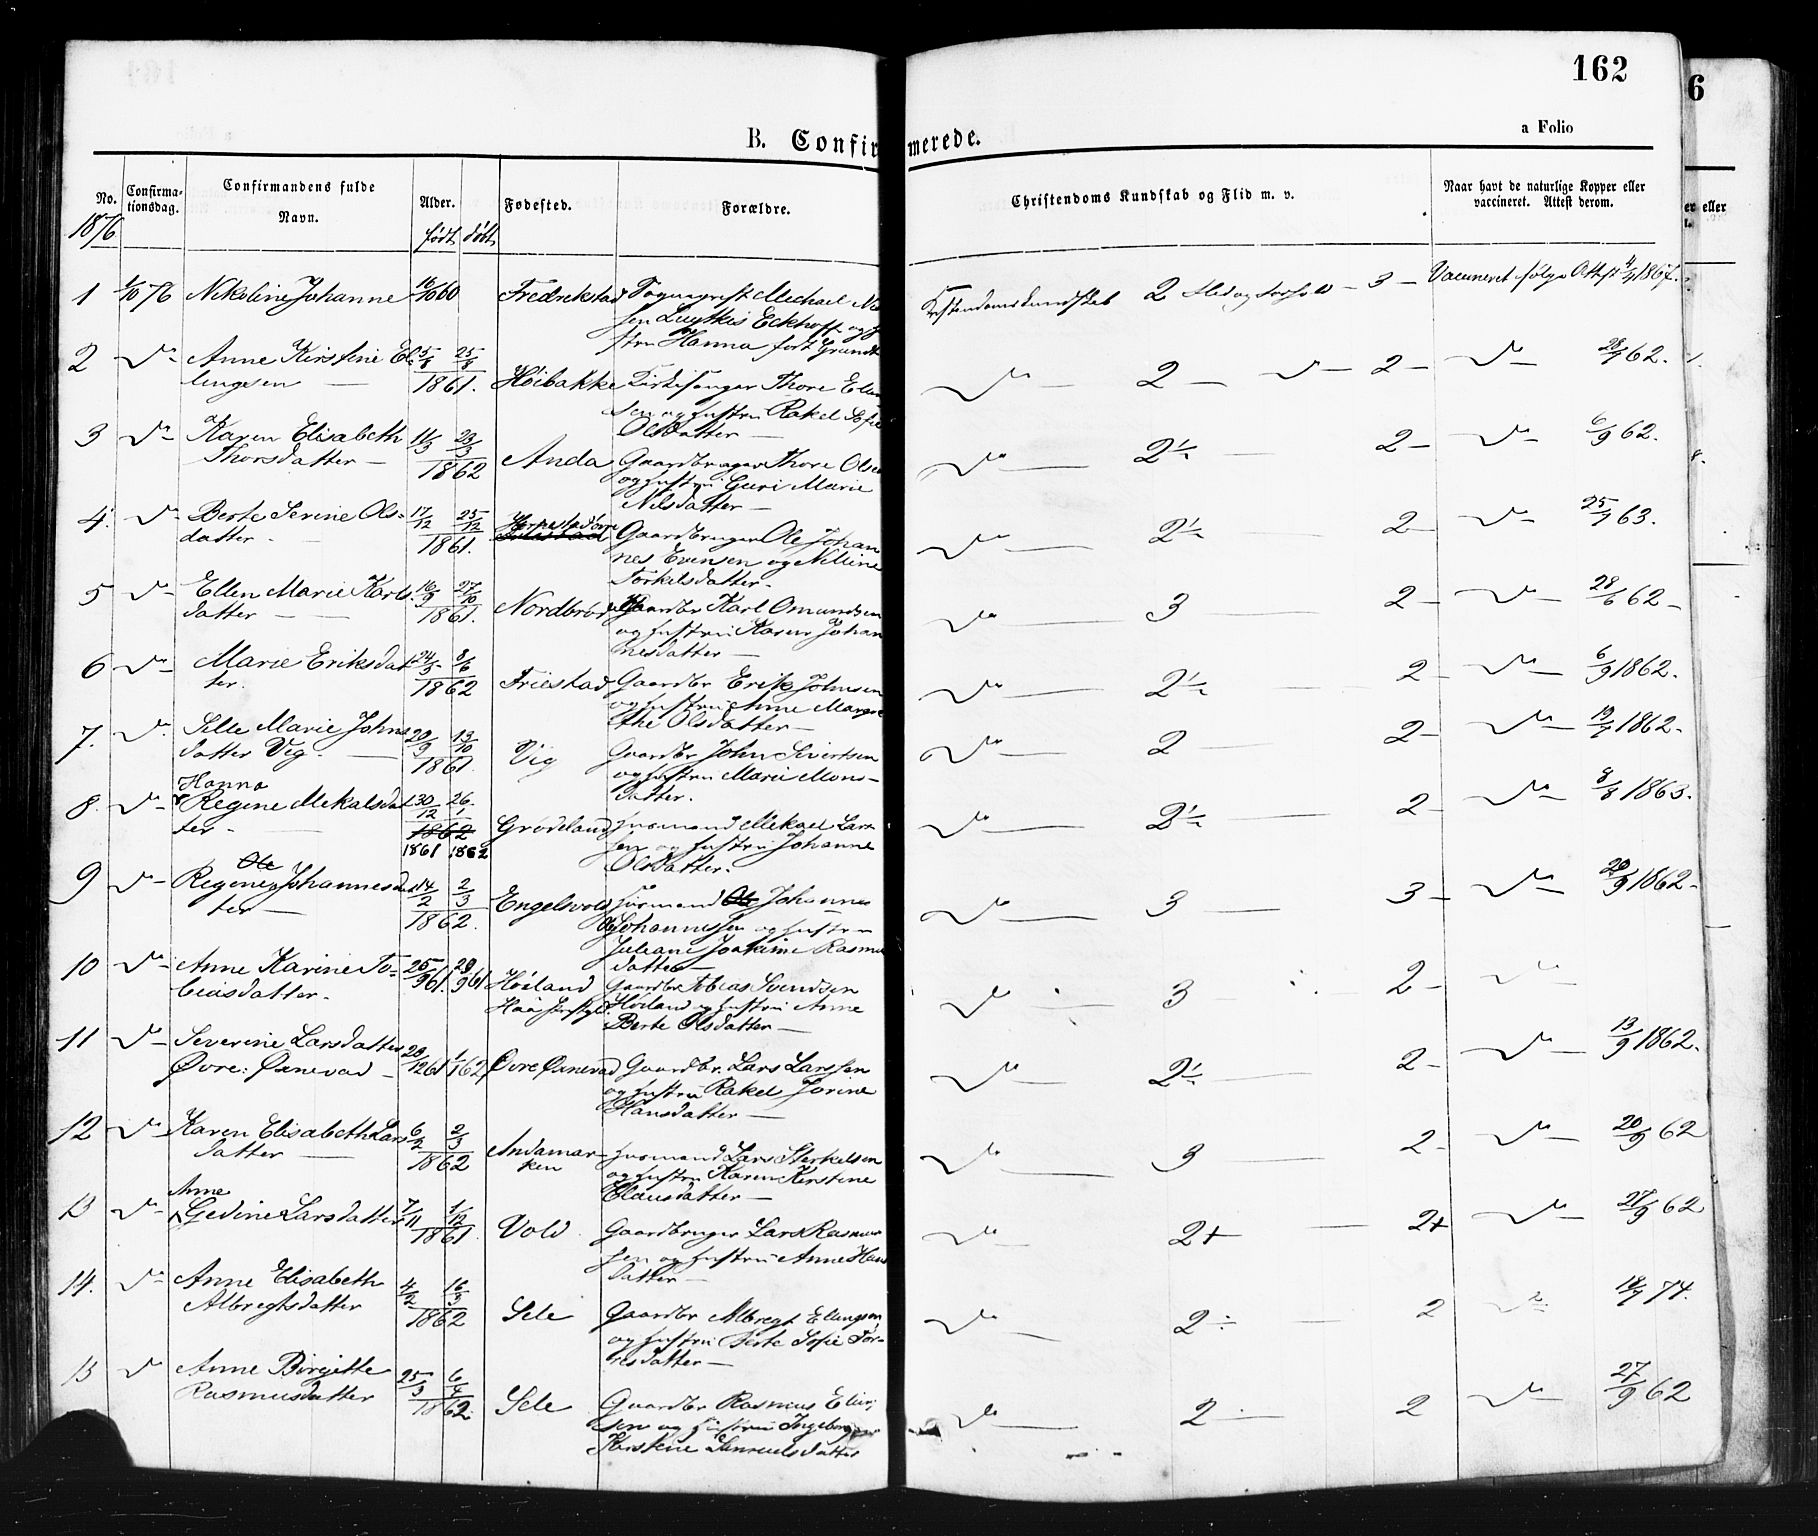 162
6
a Folio
B. Confirmerede.
No.
Confirma-
tionsdag.
Confirmandens fulde
Navn.
Alder.
Fødested.
Forældre.
Christendoms Kundskab og Flid m. v.
Naar havt de naturlige Kopper eller
vaccineret. Attest derom.
eller
1876
født døbt
1 1/10 76 Nikoline Johanne 16/10 60 Fredrikstad Michael
Luytkis Eckhoff og
Hanna født Grundt
Kristendomskundskab 2 Flid og 3 – Vaccineret følge Attest 4/9 1867.
2 Anne Kirstine El-
lingsen
5/8 25/8
1861. Høibakke Kirkesanger Thore Ellin
sen og hustru Rakel Sofie
Olsdatter –
2 – 2 – 28/9 62.
3 Karen Elisabeth
Thorsdatter –
11/3 23/3
1862 Anda Gaardbruger Thore Olsen
og hustru Guri Marie
Nilsdatter –
2 1/2 2 – 6/9 62.
4. Berte Serine Ols-
datter
17/12 25/12
1861.
Gaardbruger Ole Johan
nes Evensen og Nilline
Torkelsdatter –
2 1/2 2 – 25/9 63.
5 Ellen Marie Karls
datter –
16/9 27/10
1861. Nordbrød Gaardbr Karl Omundsen
og hustru Karen Johan
nesdatter –
3 2 – 28/6 62 –
6 Marie Eriksdat
ter.
24/5 8/6
1862 Friestad Gaardbr Erik Johnsen
og hustru Anne Margre
the Olsdatter –
2 1/2 2 – 6/9 1862.
7. Sille Marie Johns
datter Vig. –
20/9 13/10
1861. Vig Gaardbr John Sivertsen
og hustru Marie Mons-
datter.
2 2 – 19/9 1862.
Hanna
8. Regine Mekalsdat
ter –
30/12 26/1
1862
1861 1862
Grødeland Husmand Mikael Lars
sen og hustru Johanne
Olsdatter.
2 1/2 2 – 8/8 1863.
Ole
9 Regine Johannesdat
ter –
14/2 2/3
1862. Engelsvold Husmand Ole Johannes
Johannessen og hustru
Juliane Joakime Rasmus
datter –
3 3 – 20/9 1862 –
10 Anne Karine To-
biasdatter.
25/9 61. 29/9 61 Høiland
Gaardbr Tobias Svendsen
Høiland og hustru Anne
Berte Olsdatter –
3 2 –
11 Severine Larsdatter
Øvre: Øxnevad –
29/12 61 1/1 62 Øvre Øxnevad Gaardbr. Lars Larssen
og hustru Rakel Jorine
Hansdatter –
2 1/2 2 – 13/9 1862.
12 Karen Elisabeth Lars
datter –
6/2 2/3
1862 Andamar-
ken
Husmand Lars Sterkelsen
og hustru Karen Kirstine
Clausdatter –
3 2 – 20/9 62
Anne
13 Gedine Larsdatter
7/11 1/12
1861. Vold. Gaardbruger Lars Rasmus
sen og hustru Anne Hans
datter –
2+ 2+ 27/9 62
14. Anne Elisabeth
Albregtsdatter
4/2 16/3
1862 Sele Gaardbr Albregt Ellingsen
og hustru Berte Sofie Tor-
resdatter –
2 ÷ 2 18/7 74.
15 Anne Birgitte
Rasmusdatter
25/3 6/4
1862. Sele Gaardbr Rasmus
sen og hustru Ingeborg
Kirstine Samuelsdatter
2 2 27/9 62